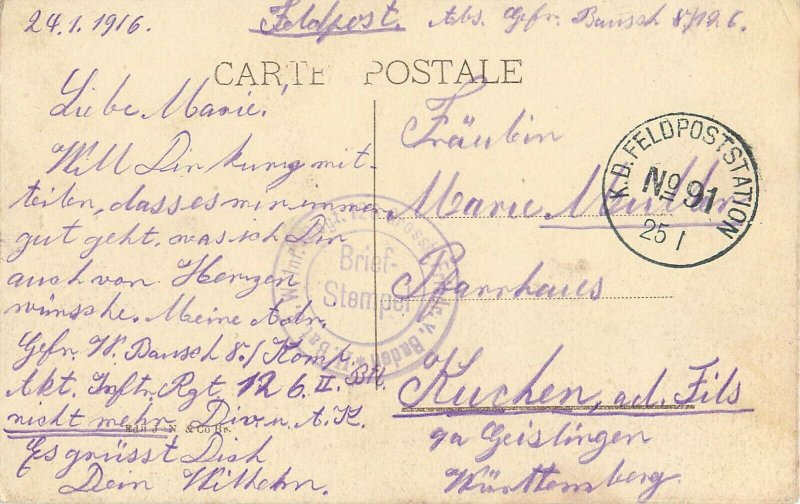 24.1.1916.
Feldpost. Abs. Gefr. Bausch 8/126.
CARTE POSTALE
Liebe Marie!
Will Dir kurz mit-
teilen, dass es mir immer
gut geht, was ich Dir
auch von Herzen
wünsche. Meine Adr.
Gefr. W. Bausch 8./Komp.
Akt. Inftr. Rgt. 126. II. Btl.
nicht mehr Div. u. A.K.
Es grüsst Dich
Dein Wilhelm.
Fräulein
Marie
Pfarrhaus
Kuchen, a.d. Fils
Geislingen
Württemberg.
K.D. FELDPOSTSTATION
No 91
25 1
Brief-
Stempel
v. Baden
& Co